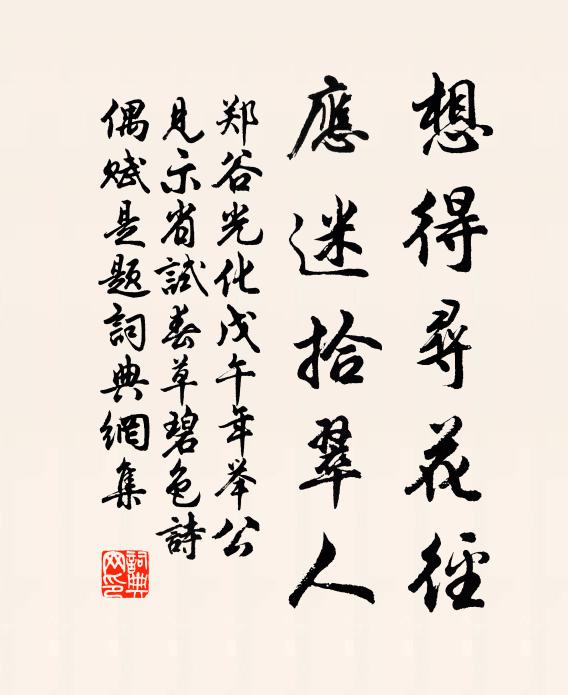 想得尋花徑
應迷拾翠人
郑谷光化戊午年举公
見示省試春草碧色詩
偶赋是題詞典網集
詞典
网印